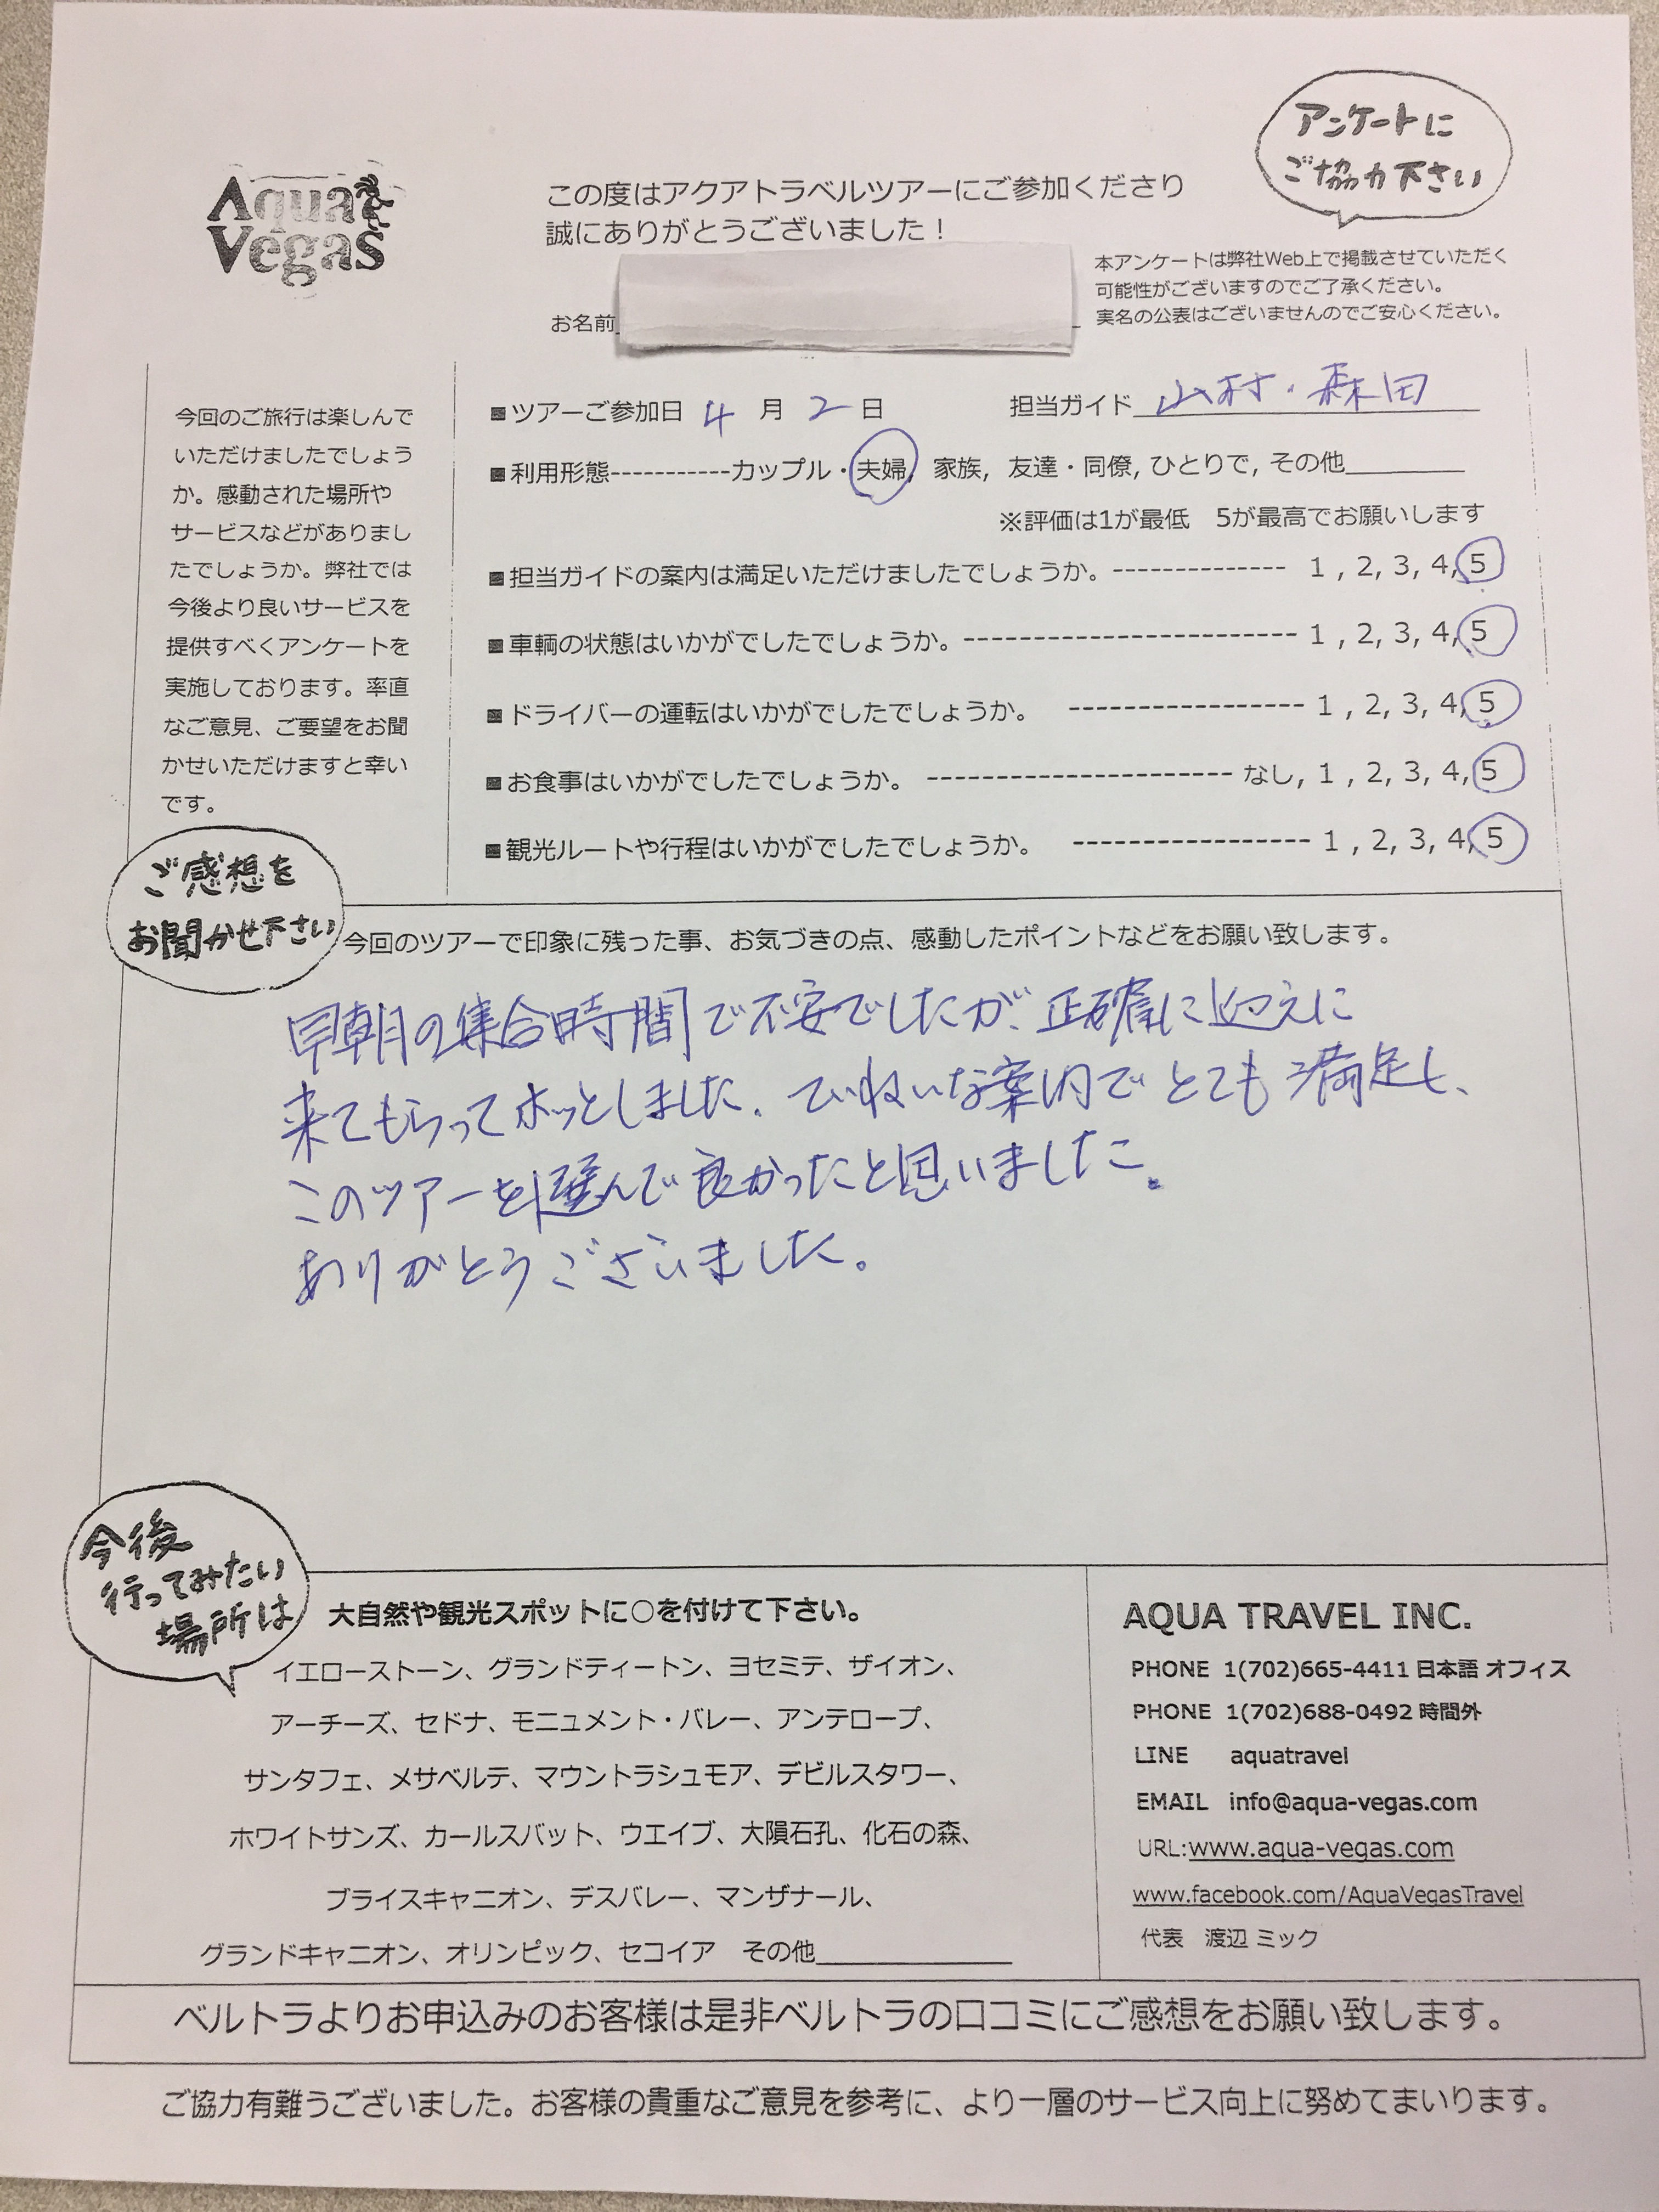 アンケートに
ご協力下さい
Aqua
Vegas
この度はアクアトラベルツアーにご参加くださり
誠にありがとうございました！
本アンケートは弊社Web上で掲載させていただく
可能性がございますのでご了承ください。
実名の公表はございませんのでご安心ください。
お名前
今回のご旅行は楽しんで
いただけましたでしょう
か。感動された場所や
サービスなどがありまし
たでしょうか。弊社では
今後より良いサービスを
提供すべくアンケートを
実施しております。率直
なご意見、ご要望をお聞
かせいただけますと幸い
です。
■ツアーご参加日 4 月 2 日 担当ガイド 山村・森田
■利用形態-----------カップル・夫婦, 家族, 友達・同僚, ひとりで, その他________
※評価は1が最低　5が最高でお願いします
■担当ガイドの案内は満足いただけましたでしょうか。-------------- 1 , 2, 3, 4, 5
■車輌の状態はいかがでしたでしょうか。------------------------ 1 , 2, 3, 4, 5
■ドライバーの運転はいかがでしたでしょうか。 ----------------- 1 , 2, 3, 4, 5
■お食事はいかがでしたでしょうか。 ---------------------- なし, 1 , 2, 3, 4, 5
■観光ルートや行程はいかがでしたでしょうか。 ----------------- 1 , 2, 3, 4, 5
ご感想を
お聞かせ下さい
今回のツアーで印象に残った事、お気づきの点、感動したポイントなどをお願い致します。
早朝の集合時間で不安でしたが、正確に迎えに
来てもらってホッとしました。ていねいな案内でとても満足し、
このツアーを選んで良かったと思いました。
ありがとうございました。
今後
行ってみたい
場所は
大自然や観光スポットに○を付けて下さい。
イエローストーン、グランドティートン、ヨセミテ、ザイオン、
アーチーズ、セドナ、モニュメント・バレー、アンテロープ、
サンタフェ、メサベルテ、マウントラシュモア、デビルスタワー、
ホワイトサンズ、カールスバット、ウエイブ、大隕石孔、化石の森、
ブライスキャニオン、デスバレー、マンザナール、
グランドキャニオン、オリンピック、セコイア　その他______________
AQUA TRAVEL INC.
PHONE 1(702)665-4411 日本語 オフィス
PHONE 1(702)688-0492 時間外
LINE aquatravel
EMAIL info@aqua-vegas.com
URL:www.aqua-vegas.com
www.facebook.com/AquaVegasTravel
代表　渡辺 ミック
ベルトラよりお申込みのお客様は是非ベルトラの口コミにご感想をお願い致します。
ご協力有難うございました。お客様の貴重なご意見を参考に、より一層のサービス向上に努めてまいります。